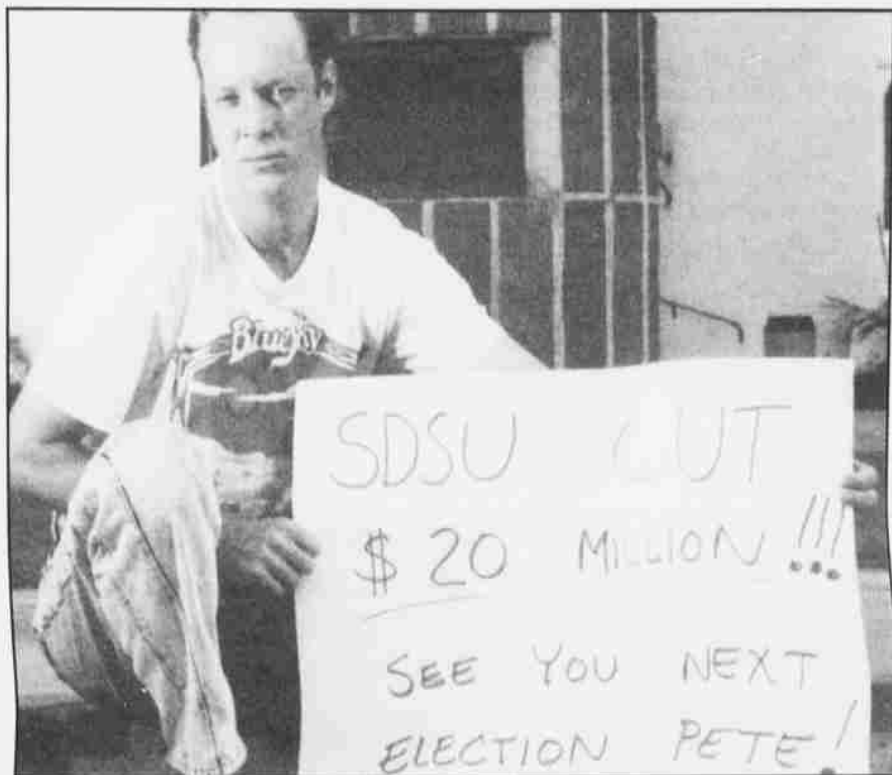 SDSU CUT
$20 MILLION!!!
SEE YOU NEXT
ELECTION PETE!